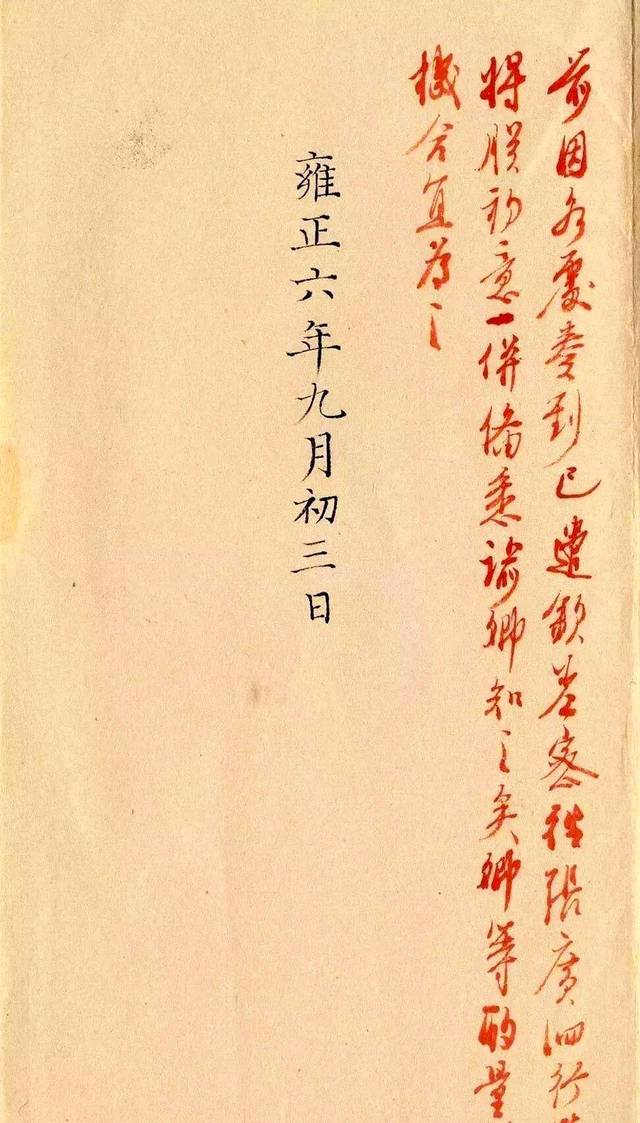 前因各處奏到已遣欽差密往張廣泗行
將朕初意一併俻悉諭卿知之矣卿等酌量
機合宜為之
雍正六年九月初三日